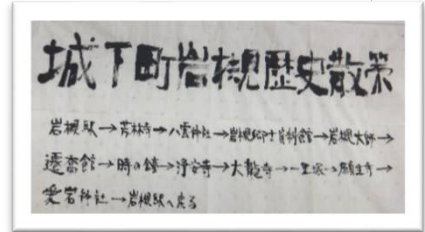 城下町岩槻歴史散策
岩槻駅→芳林寺→八雲神社→岩槻郷土資料館→岩槻大師→
遷喬館→時の鐘→浄安寺→大龍寺→一里塚→願生寺→
愛宕神社→岩槻駅へ戻る